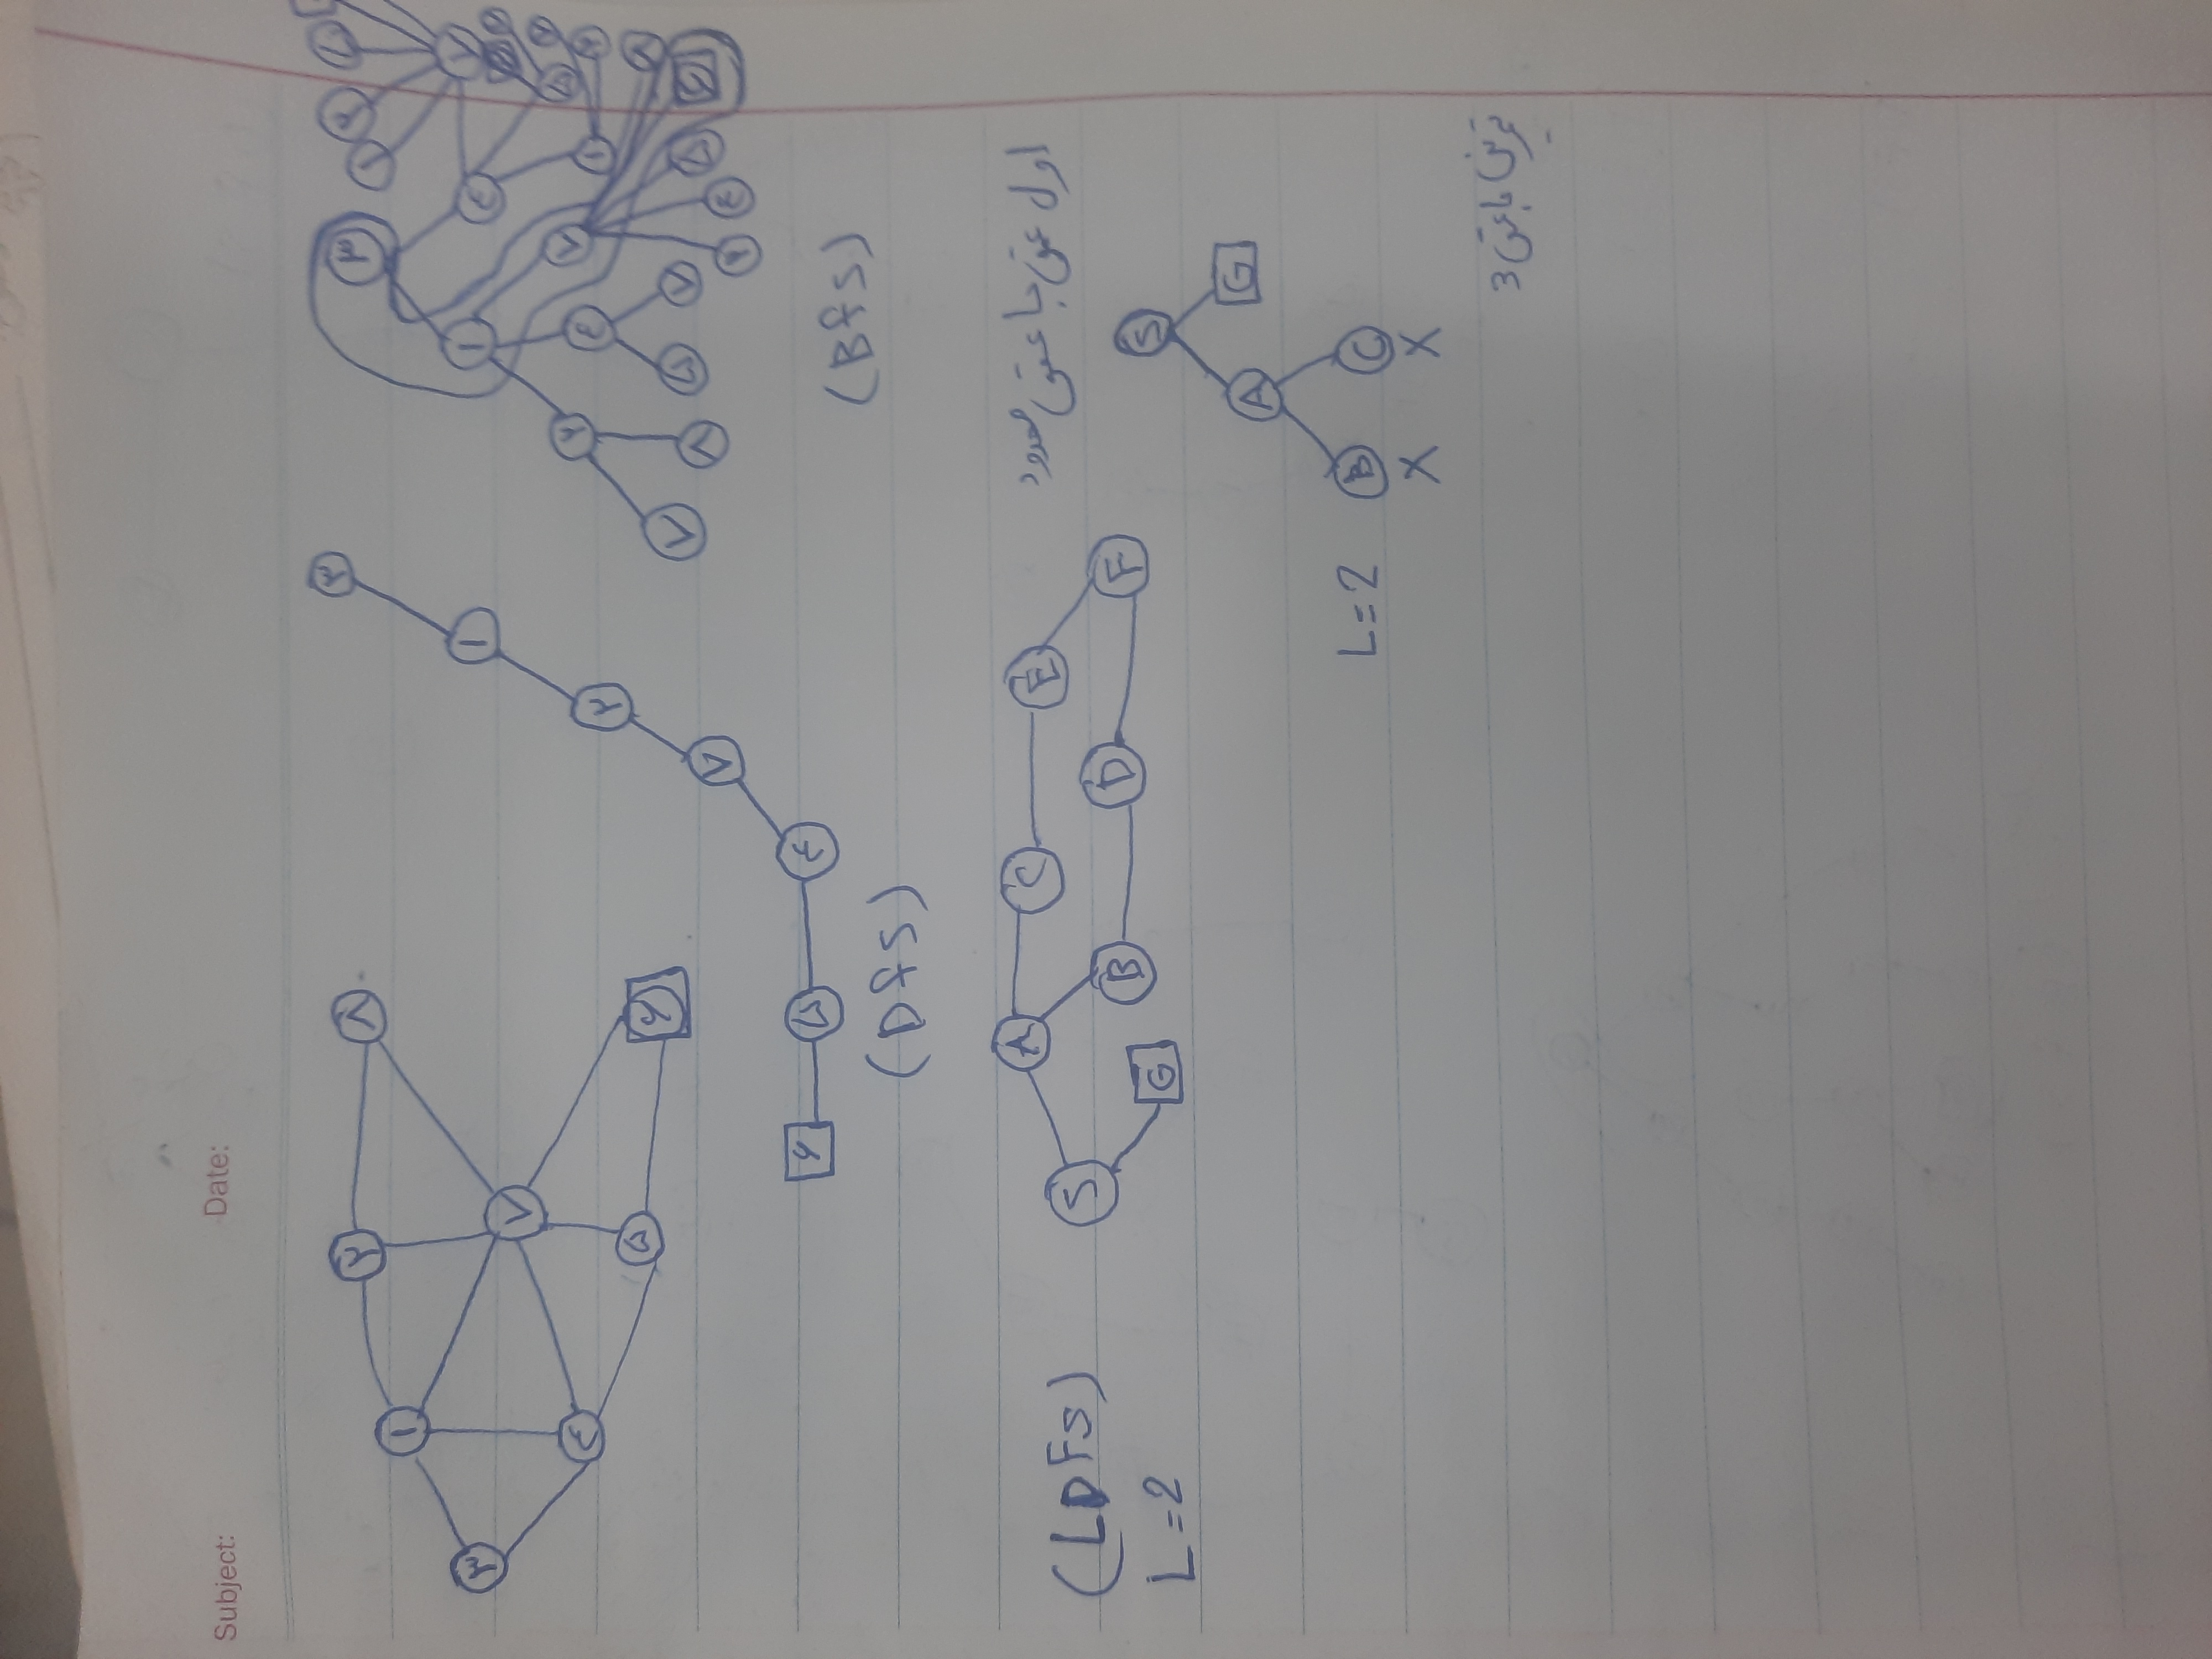 Subject: Date:
۲ ۸
۱
۳
۷
۴
۵ ۶
۳
۱
۲
۷
۶ ۵ ۴
(DfS)
۳
۱ ۴ ۷
۲ ۴ ۷ ۱
۷ ۸ ۵ ۷ ۲ ۴ ۵ ۸
(BfS)
(LDFS)
L=2
S A C E
G B D F
اول عمق با عمق محدود
S
A G
L=2 B C
X X
تمرین با عمق 3